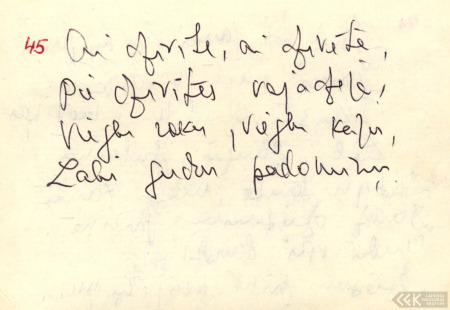 45 Ai dzīvīte, ai dzīvīte,
Pie dzīvītes vajadzēja:
Vieglu roku, vieglu kāju,
Labi gudru padomiņu.